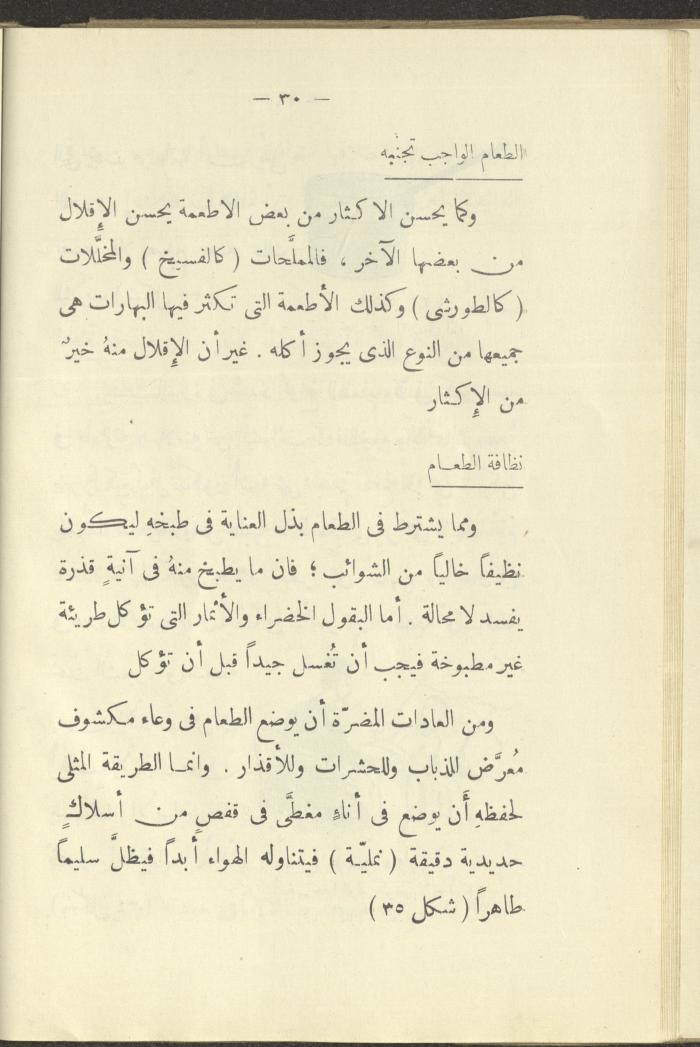 — ٣٠ —
الطعام الواجب تجنّبه
وكما يحسن الاكثار من بعض الاطعمة يحسن الإِقلال
من بعضها الآخر ، فالمملَّحات ( كالفسيخ ) والمخلَّلات
( كالطورشى ) وكذلك الأطعمة التى تكثر فيها البهارات هى
جميعها من النوع الذى يجوز أكله . غير أن الإِقلال منهُ خيرٌ
من الإِكثار
نظافة الطعام
ومما يشترط فى الطعام بذل العناية فى طبخهِ ليكون
نظيفاً خالياً من الشوائب ؛ فان ما يطبخ منهُ فى آنيةٍ قذرة
يفسد لا محالة . أما البقول الخضراء والأثمار التى تؤكل طريئة
غير مطبوخة فيجب أن تُغسل جيداً قبل أن تؤكل
ومن العادات المضرّة أن يوضع الطعام فى وعاء مكشوف
مُعرَّض للذباب وللحشرات وللأقذار . وانما الطريقة المثلى
لحفظهِ أَن يوضع فى أناءٍ مغطَّى فى قفصٍ من أسلاكٍ
حديدية دقيقة ( نمليّة ) فيتناوله الهواء أبداً فيظلَّ سليماً
طاهراً ( شكل ٣٥ )